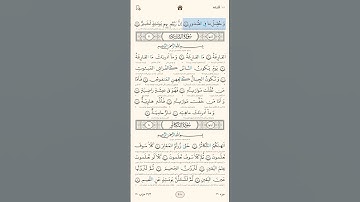 وَحُصِّلَ مَا فِي الصُّدُورِ إِنَّ رَبَّهُم بِهِمْ يَوْمَئِذٍ لَّخَبِيرٌ
سُورَةُ القَارِعَةِ
بِسْمِ اللَّهِ الرَّحْمَٰنِ الرَّحِيمِ
الْقَارِعَةُ مَا الْقَارِعَةُ وَمَا أَدْرَاكَ مَا الْقَارِعَةُ
يَوْمَ يَكُونُ النَّاسُ كَالْفَرَاشِ الْمَبْثُوثِ
وَتَكُونُ الْجِبَالُ كَالْعِهْنِ الْمَنفُوشِ
فَأَمَّا مَن ثَقُلَتْ مَوَازِينُهُ فَهُوَ فِي عِيشَةٍ رَّاضِيَةٍ
وَأَمَّا مَنْ خَفَّتْ مَوَازِينُهُ فَأُمُّهُ هَاوِيَةٌ
وَمَا أَدْرَاكَ مَا هِيَهْ نَارٌ حَامِيَةٌ
سُورَةُ التَّكَاثُرِ
بِسْمِ اللَّهِ الرَّحْمَٰنِ الرَّحِيمِ
أَلْهَاكُمُ التَّكَاثُرُ حَتَّىٰ زُرْتُمُ الْمَقَابِرَ كَلَّا سَوْفَ
تَعْلَمُونَ ثُمَّ كَلَّا سَوْفَ تَعْلَمُونَ كَلَّا لَوْ تَعْلَمُونَ
عِلْمَ الْيَقِينِ لَتَرَوُنَّ الْجَحِيمَ ثُمَّ لَتَرَوُنَّهَا
عَيْنَ الْيَقِينِ ثُمَّ لَتُسْأَلُنَّ يَوْمَئِذٍ عَنِ النَّعِيمِ